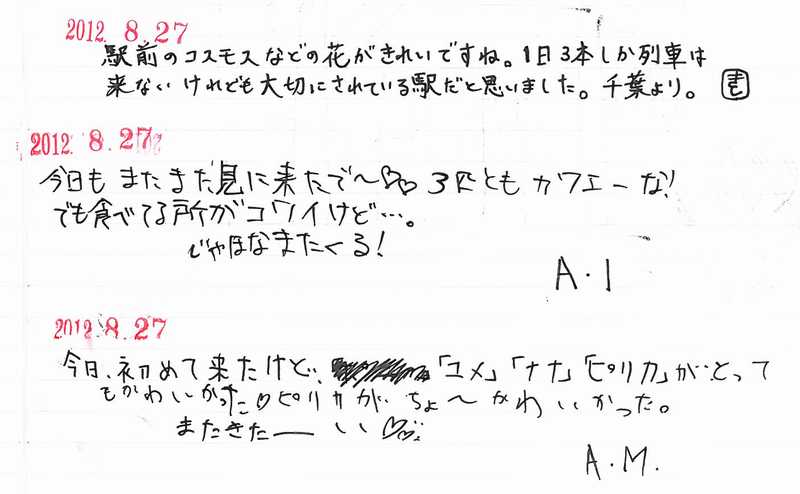 2012. 8.27
駅前のコスモスなどの花がきれいですね。1日3本しか列車は
来ないけれども大切にされている駅だと思いました。千葉より。
2012. 8.27
今日も またまた見に来たで〜♡♡ 3匹とも カワエーな!
でも食べてる所がコワイけど…。
じゃほなまたくる!
A・I
2012. 8.27
今日、初めて来たけど、「ユメ」「ナナ」「ピリカ」が、とって
もかわいかった♡ピリカが、ちょ〜かわいかった。
またきたーーいい♡♡
A.M.